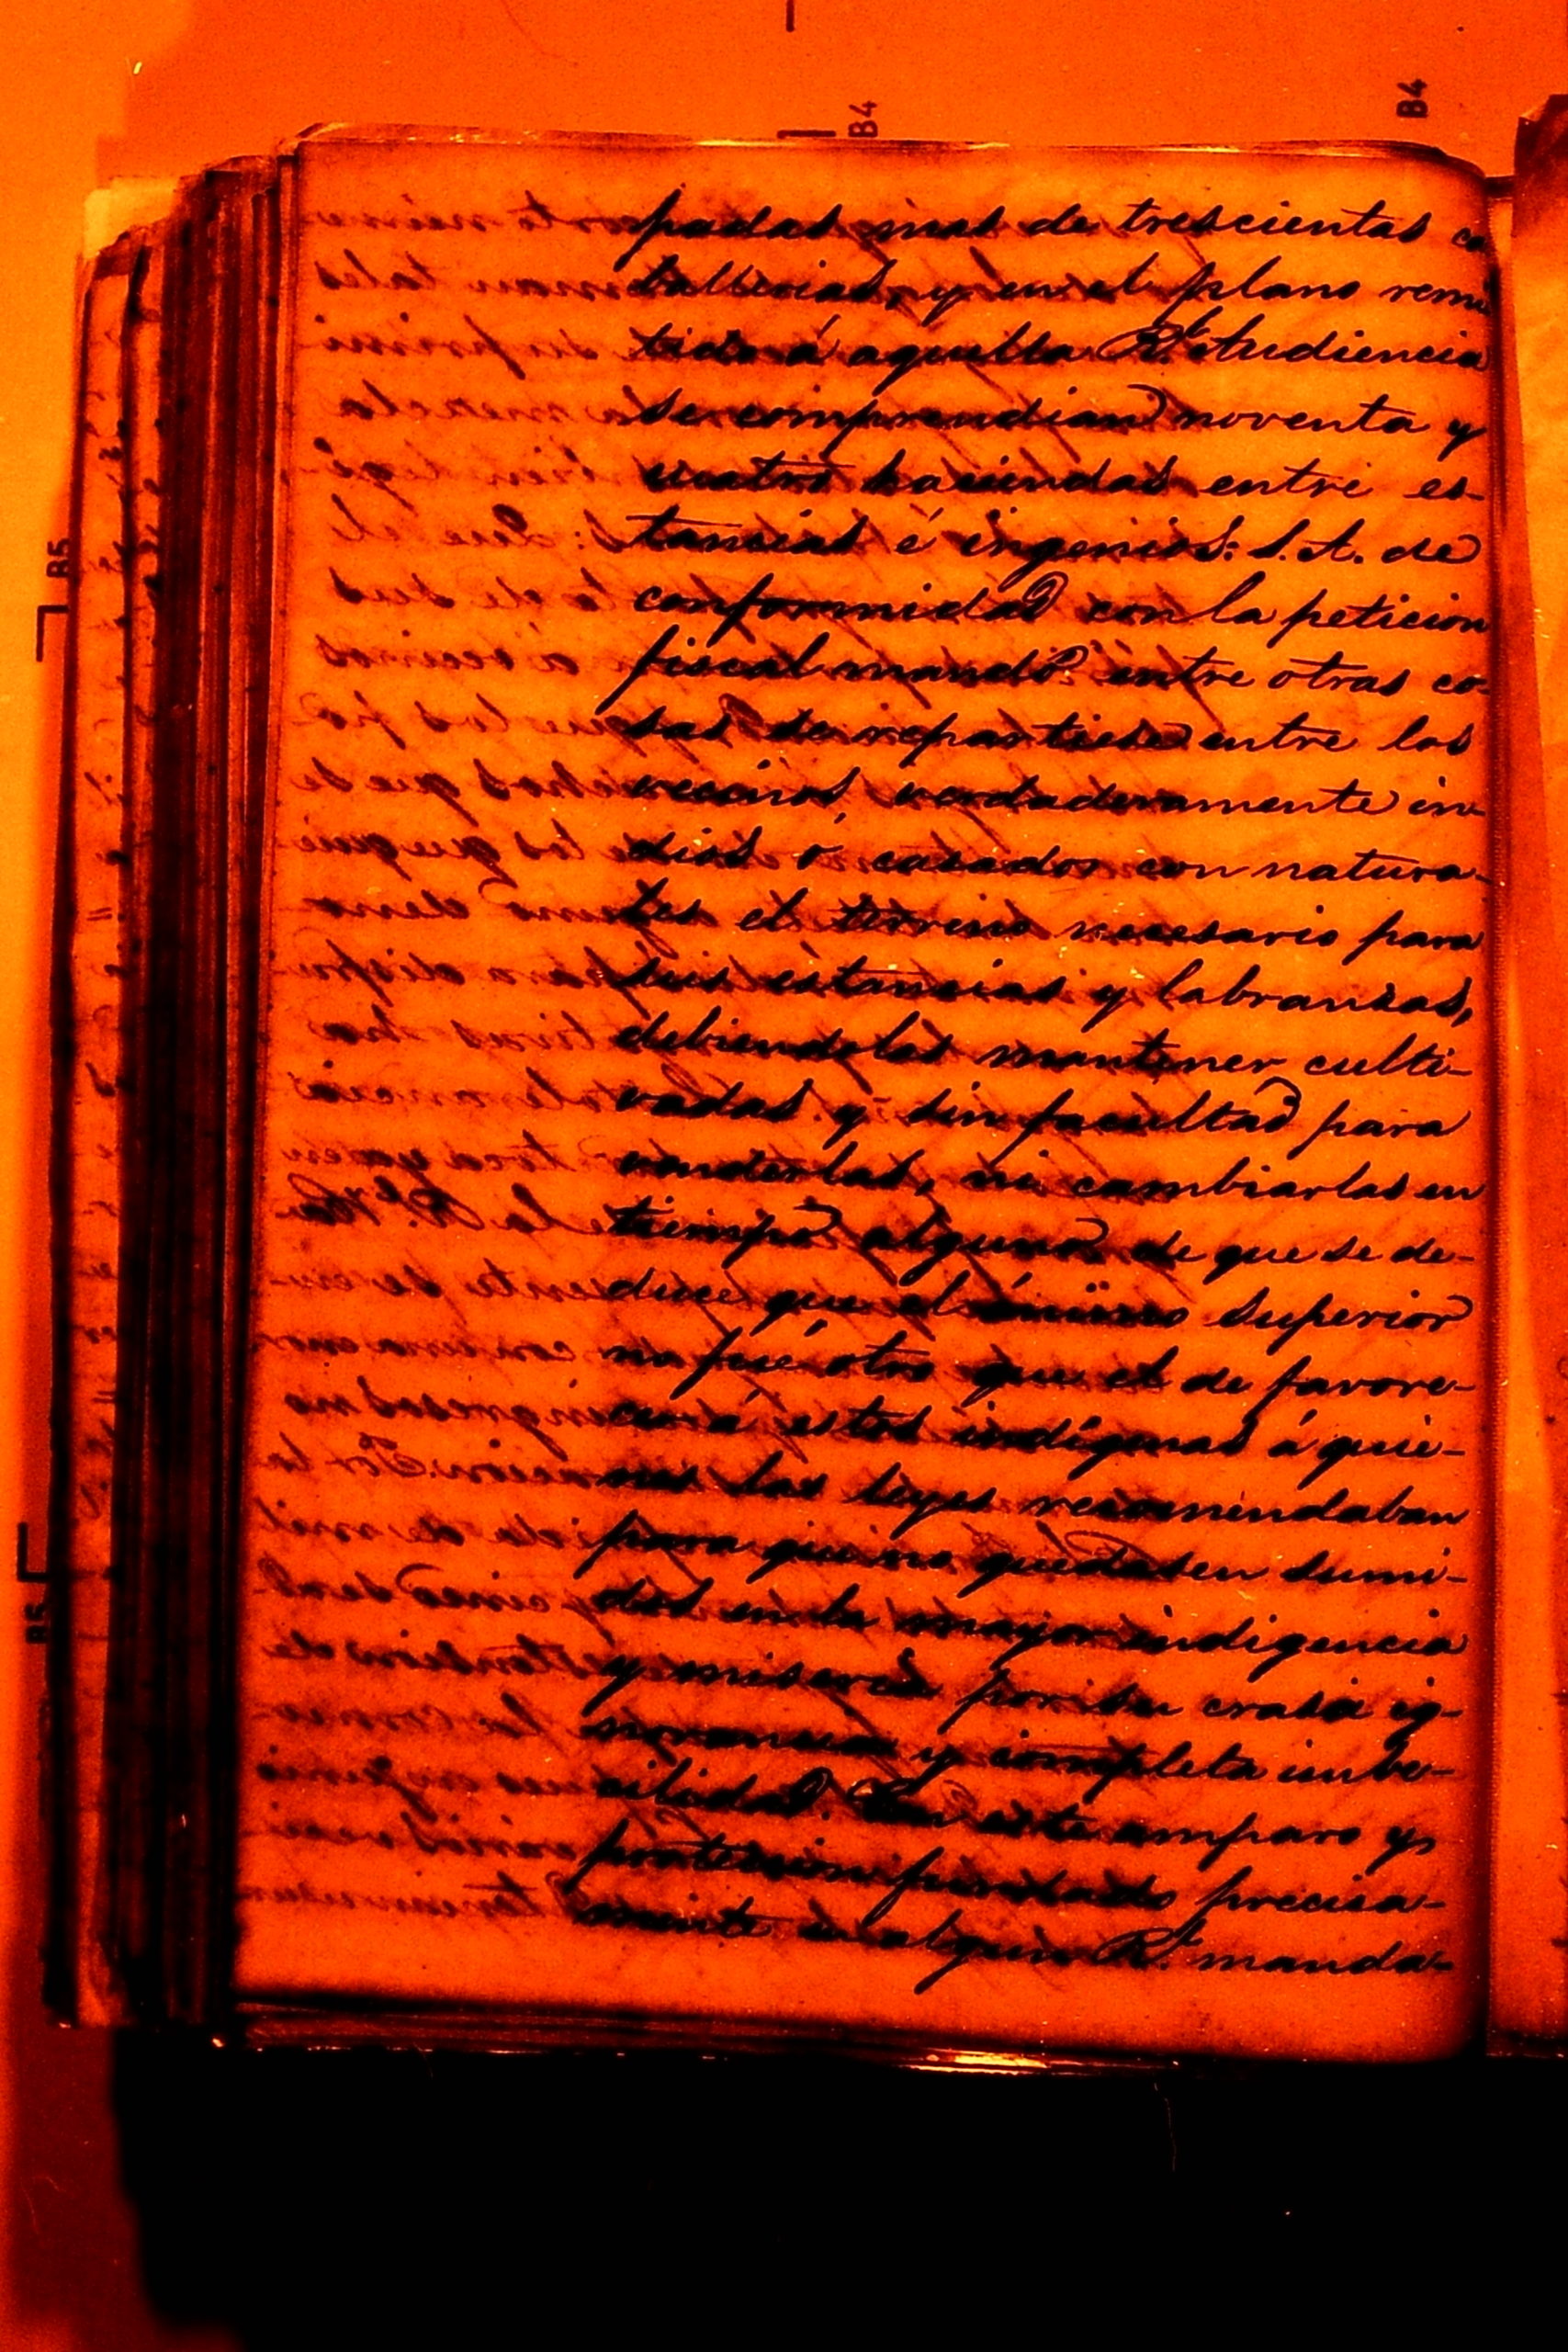 B4
B4
B5
B5
padas mas de trescientas ca
ballerias, y en el plano remi
tido á aquella Rl. Audiencia
se comprendian noventa y
cuatro haciendas entre es-
tancias é ingenios: S. A. de
conformidad con la peticion
fiscal mandó entre otras co-
sas se repartiese entre los
vecinos verdaderamente in-
dios ó casados con natura-
les el terreno necesario para
sus estancias y labranzas,
debiendolas mantener culti-
vadas y sin facultad para
venderlas, ni cambiarlas en
tiempo alguno de que se de-
duce que el ánimo superior
no fué otro que el de favore-
cer á estos indígenas á quie-
nes las leyes recomendaban
para que no quedasen sumi-
dos en la mayor indigencia
y miseria por su crasa ig-
norancia y completa imbe-
cilidad. En este amparo y
proteccion fundado precisa-
mente en algun Rl. manda-